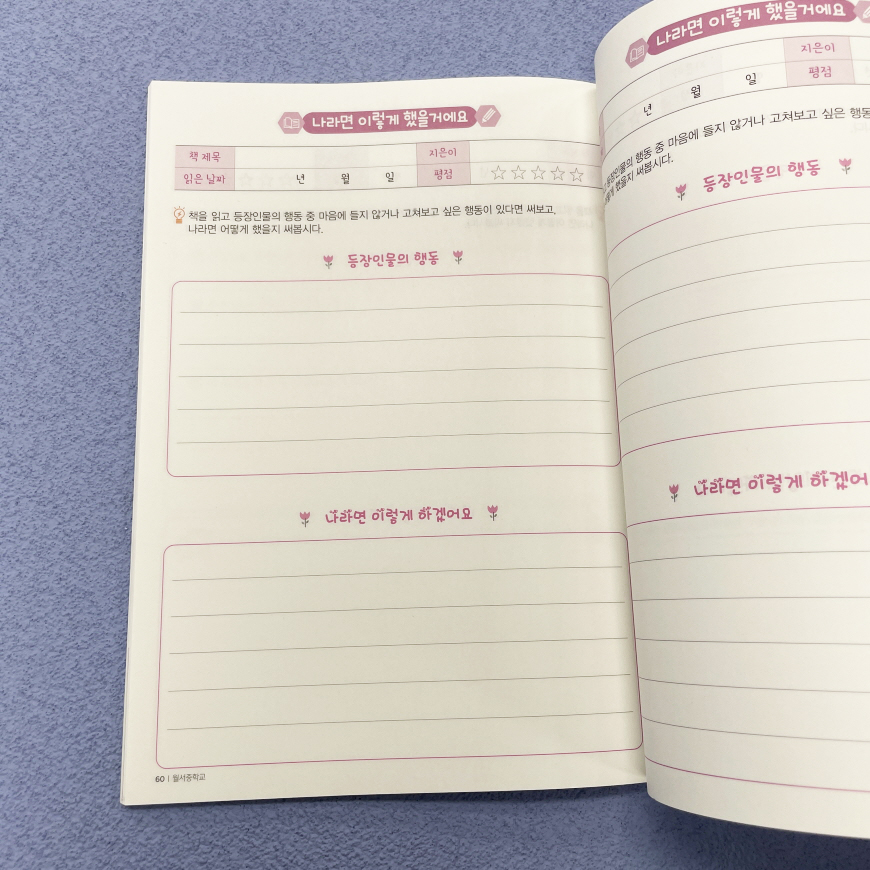 나라면 이렇게 했을거에요
책 제목 지은이
읽은 날짜 년 월 일 평점 ☆☆☆☆☆
책을 읽고 등장인물의 행동 중 마음에 들지 않거나 고쳐보고 싶은 행동이 있다면 써보고,
나라면 어떻게 했을지 써봅시다.
등장인물의 행동
나라면 이렇게 하겠어요
60 | 월서중학교
나라면 이렇게 했을거에요
지은이
년 월 일 평점
등장인물의 행동 중 마음에 들지 않거나 고쳐보고 싶은 행동
했을지 써봅시다.
등장인물의 행동
나라면 이렇게 하겠어